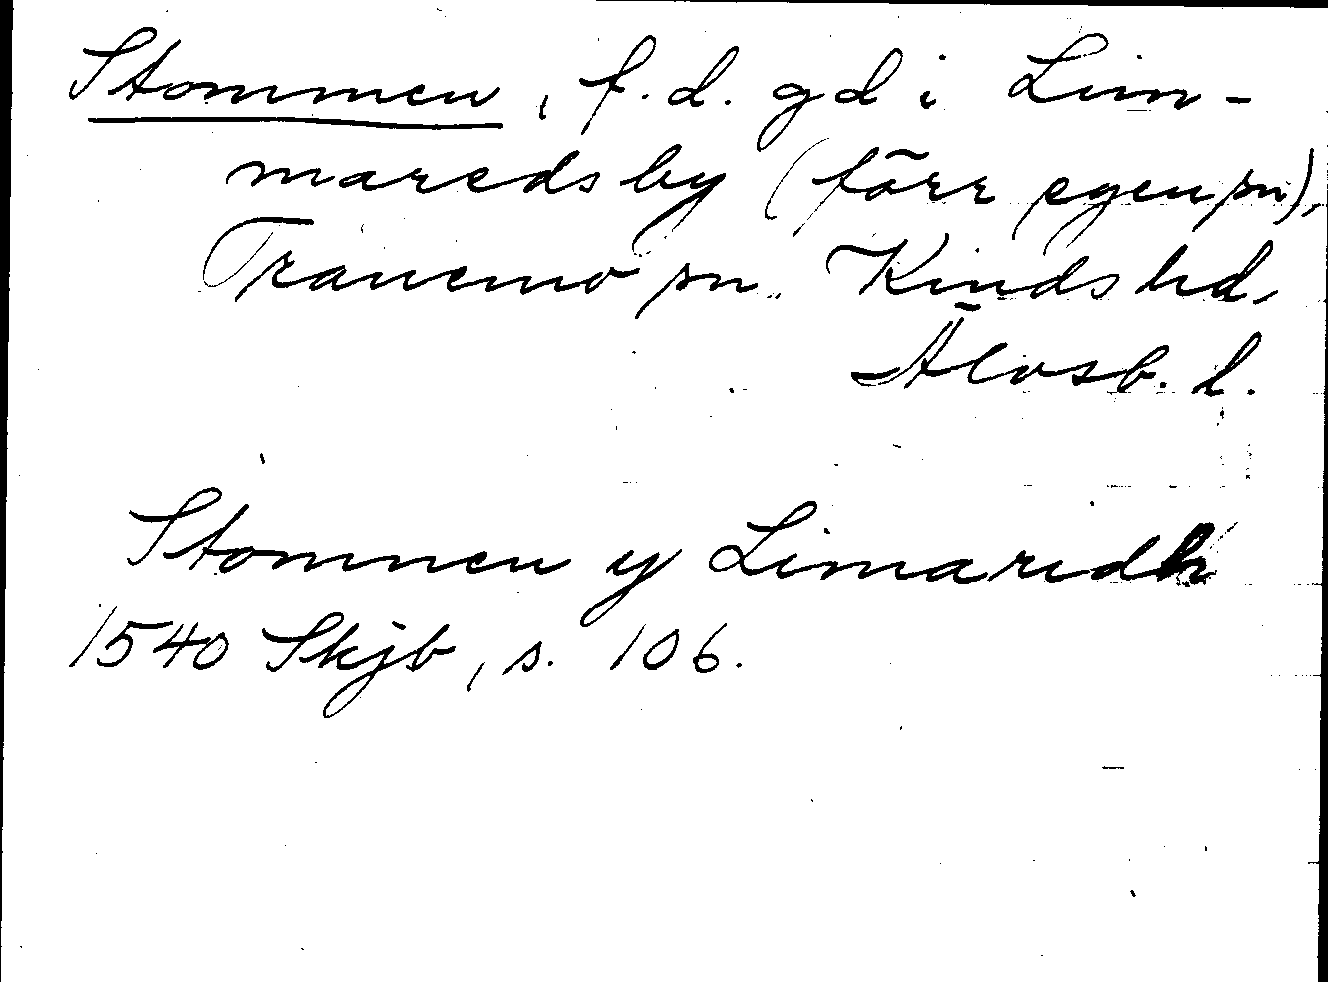 Stommen, f.d. gd i Lim-
mareds by (förr egen sn),
Tranemo sn, Kinds hd,
Älvsb. l.
Stomnen y Limaridh
1540 Skjb, s. 106.